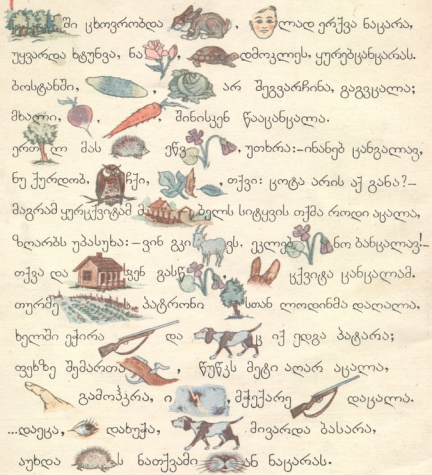 ში ცხოვრობდა , ლად ერქვა ნაცარა,
უყვარდა ხტუნვა, ნა , დმოკლეს, ყურებცანცარას.
ბოსტანში, , არ შეგვარჩინა, გაგვცალა;
მხალი, , , შინისკენ წააცანცალა.
ერთ ლი მას ეწვ , უთხრა:–ინანებ ცანგალავ,
ნუ ქურდობ, ჩქი, , თქვი: ცოტა არის აქ განა?–
მაგრამ ყურცქვიტამ მ ბელს სიტყვის თქმა როდი აცალა,
ზღარბს უპასუხა:–ვინ გკი ვს. ეკლი ნო ბანცალავ!–
თქვა და ვენ გასწ , ცქვიტა ცანცალამ.
თურმე ს, პატრონი სთან ლოდინმა დაღალა,
ხელში ეჭირა და ც იქ ედგა პატარა;
ფეხზე შემართა , წუწკს მეტი აღარ აცალა,
გამოჰკრა, ი , მჭექარე დაცალა.
...დაეცა, დახუჭა, მივარდა ბასარა,
აუხდა ს ნათქვამი ან ნაცარას.